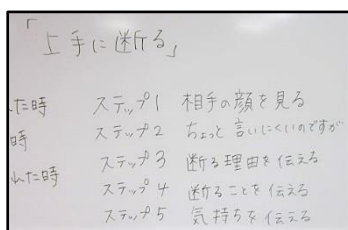 「上手に断る」
た時 ステップ1 相手の顔を見る
時 ステップ2 ちょっと言いにくいのですが
れた時 ステップ3 断る理由を伝える
ステップ4 断ることを伝える
ステップ5 気持ちを伝える